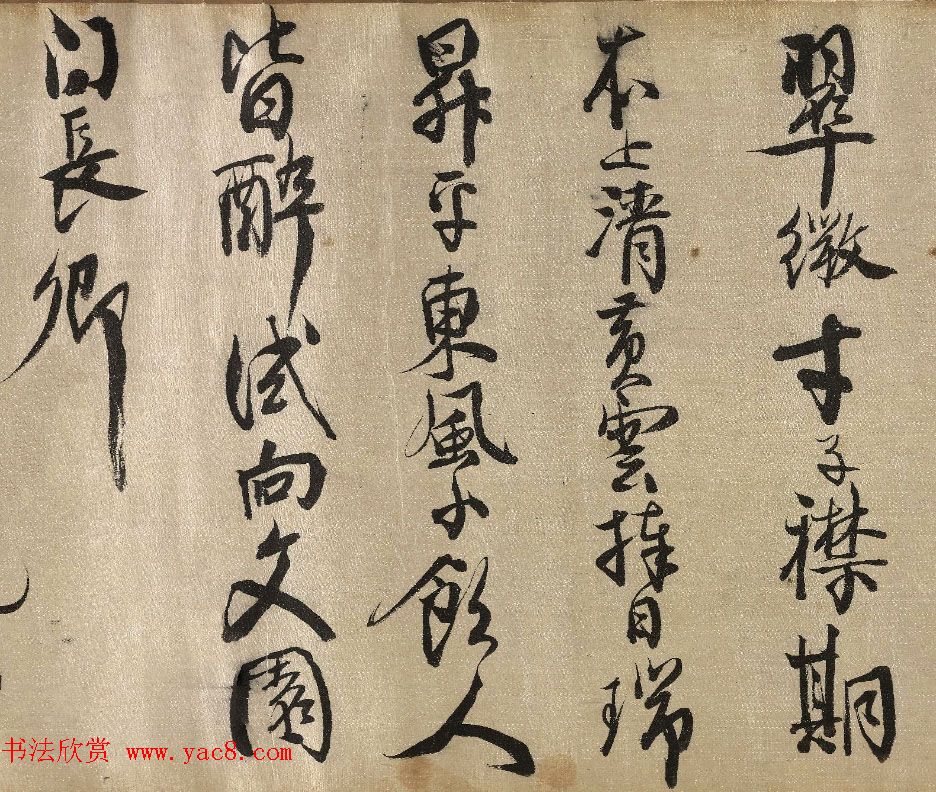 翠微才子襟期
本上清黄雲捧日瑞
昇平東風小飲人
皆醉試向文園
问長卿
书法欣赏 www.yac8.com